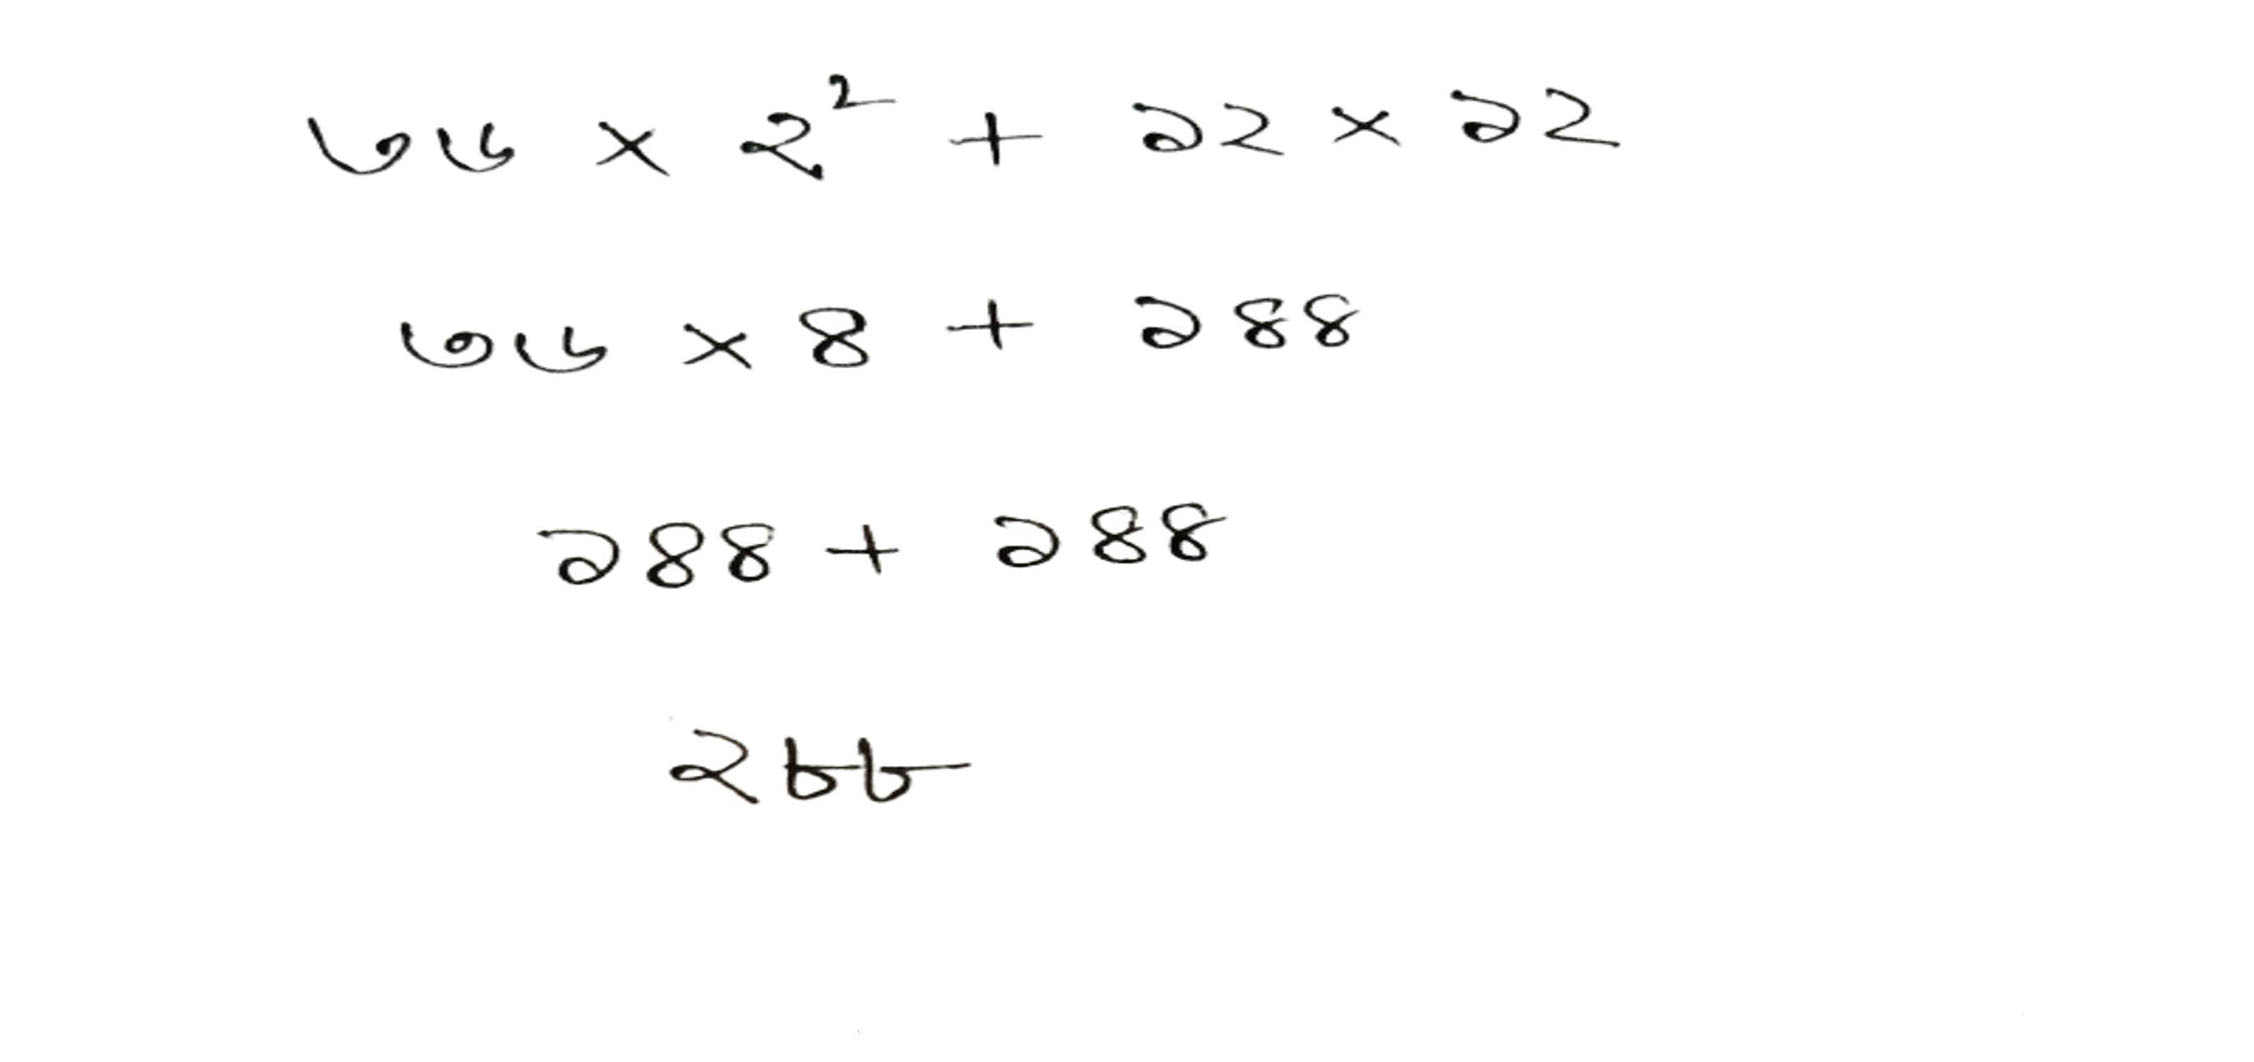 ৩৬ × ২² + ১২ × ১২
৩৬ × ৪ + ১৪৪
১৪৪ + ১৪৪
২৮৮